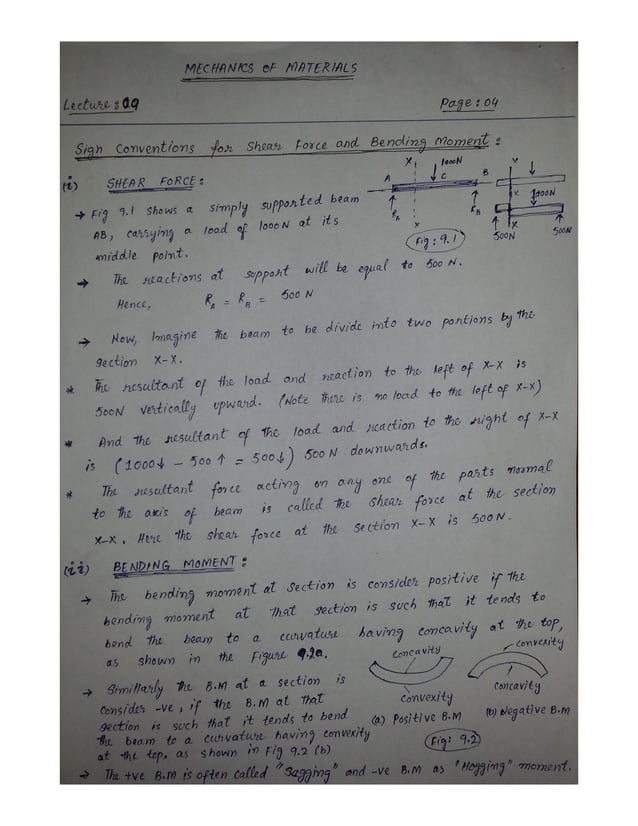 MECHANICS OF MATERIALS
Lecture : 09
Page : 04
Sign Conventions for Shear Force and Bending Moment :
(i) SHEAR FORCE :
→ Fig 9.1 shows a simply supported beam
AB, carrying a load of 1000N at its
middle point.
X 1000N
A C B
R_A R_B
X
Fig : 9.1
X
X 1000N
X
500N 500N
→ The reactions at support will be equal to 500 N.
Hence, R_A = R_B = 500 N
→ Now, Imagine the beam to be divide into two portions by the
section X-X.
* The resultant of the load and reaction to the left of X-X is
500N vertically upward. (Note there is no load to the left of X-X)
* And the resultant of the load and reaction to the right of X-X
is (1000↓ - 500↑ = 500↓) 500 N downwards.
* The resultant force acting on any one of the parts normal
to the axis of beam is called the shear force at the section
X-X. Here the shear force at the section X-X is 500N.
(ii) BENDING MOMENT :
→ The bending moment at section is consider positive if the
bending moment at that section is such that it tends to
bend the beam to a curvature having concavity at the top,
as shown in the Figure 9.2a.
→ Simillarly the B.M at a section is
consider -ve, if the B.M at that
section is such that it tends to bend
the beam to a curvature having convexity
at the top. as shown in Fig 9.2 (b)
Concavity convexity
convexity concavity
(a) Positive B.M (b) Negative B.M
Fig: 9.2
→ The +ve B.M is often called "Sagging" and -ve B.M as "Hogging" moment.